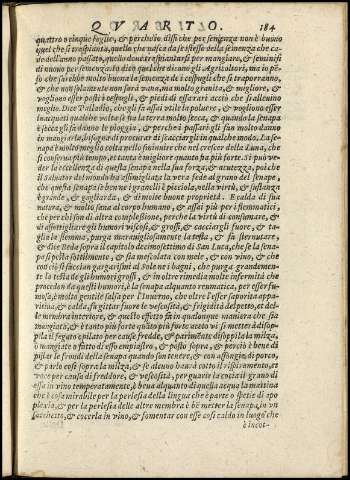 QVARTO. 184
quattro o cinque foglie, & perche io dissi che per semenza non è buono
quel che si traspianta, quello che nasce da se stesso della semenza che ca
de dell'anno passato, quello
di nuovo per semenza. Io dico quel che dicono gli Agricoltori, ma io pe-
so che sarebbe molto buona la semenza de i cespugli che si traporranno,
& che non solamente non sarà vana, ma molto granita, & migliore, &
vogliono esser posti i cespugli, & piedi
meglio. Dice Palladio, che gli fa assai utile la polvere, & vogliono esser
inacquati qualche volta se sia la terra molto secca, & quando la senapa
è secca gli fa danno le pioggia, & perche a passargli fuu molto danno
in mangiarla, bisogna di procurar di scacciarli in qualche modo. La se-
napa è molto meglio colta nello sminuire che nel crescer della Luna, che
si conserva più tempo, et tanto è migliore quanto sta più forte. Si può ve-
der la eccellenza di questa senapa nella sua forza, & acutezza, poi che
il Salvator del mondo ha assimigliata la vera fede al grano del senape,
che questa senapa se bene i granelli è picciola, nella virtù, & sustanza
è grande, & gagliarda, & di molte buone proprietà. È calda di sua
natura, & molto sana al corpo humano, & assai più per i flemmatici,
che per chi son di altra complessione, perche la virtù di consumare, &
di assottigliare gli humori viscosi, & grossi, & cacciargli fuore, & ta-
glia la flemma, purga maravigliosamente la testa, & fa sternutare,
& dice Beda sopra il capitolo decimosettimo di San Luca, che se la sena-
pa pesta sottilmente, & sia mescolata con mele, & con vino, & che
con ciò si faccian gargarismi al Sole ne i bagni, che purga grandemen-
te la testa de gli humori grossi, & inoltre rimedia molte infermità che
procedon da questi humori, è la senapa alquanto reumatica, per esser fu-
mosa, molto gentile salsa per l'Inverno, che oltre l'esser saporita appa-
ritiva, & calda, fa gittar fuore le ventosità, & frigidità del petto, et del-
le membra interiore, & questo effetto fa in qualunque maniera che sia
mangiata, & è tanto più forte quanto più forte aceto vi se mette: à disop-
pila il fegato opilato per cause fredde, & parimente disoppila la milza,
o mangiato o fatto d'esso empiastro, & posto sopra, & perciò è bene di
pistar le frondi della senapa quando son tenere, & con assongia di porco,
& porlo così sopra la milza, & se alcuno haverà
voce per causa di freddore, & ventosità, per guarir la cociasi grano di
essa in vino temperatamente, è beva alquanto di quella acqua la mattina
che è cosa mirabile per la perlesia della lingua che è parte o spetie di apo
plexia, & per la perlesia delle altre membra è bē metter la senapa, in vn
sacchetto, & cocerla in vino, & fomentar con esse così caldo in luogo che
è incot-